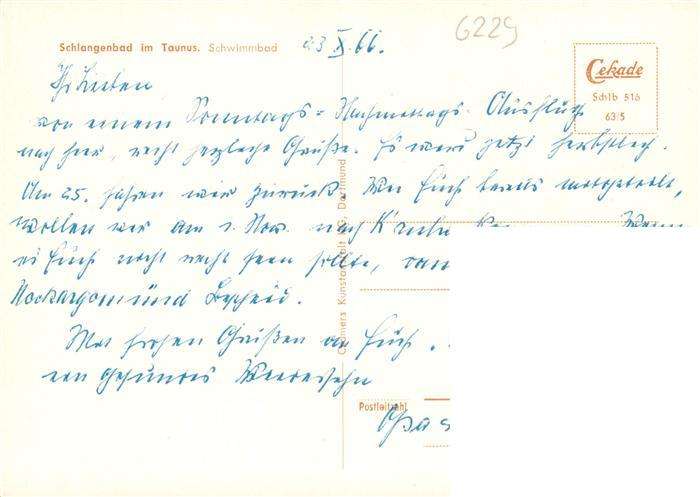 Schlangenbad im Taunus. Schwimmbad
23 X. 66.
6229
Cekade
Schlb 516
63/5
Ihr Lieben
von einem Sonntags-Nachmittags Ausflug
nach hier, recht herzliche Grüße. Es wird jetzt herbstlich.
Am 25. fahren wir zurück. Wie Euch bereits mitgeteilt,
wollen wir am 1. Nov. nach
es Euch nicht recht sein sollte,
Neckargemünd Bescheid.
Mit frohen Grüßen an Euch
ein gesundes Wiedersehn
Cramers Kunstanstalt KG, Dortmund
Postleitzahl